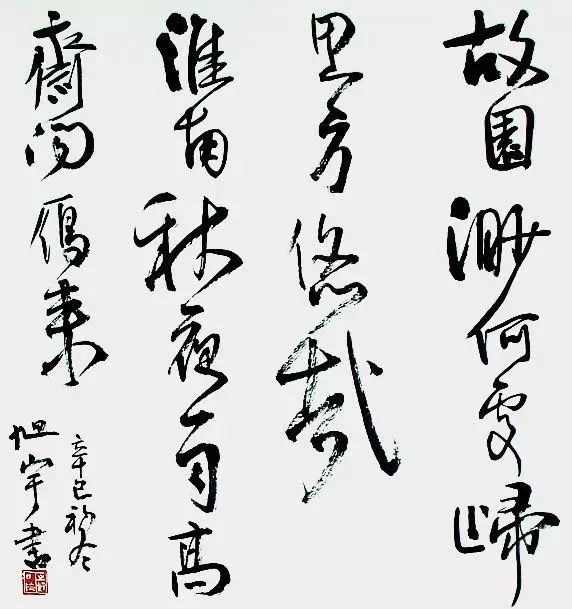 故園渺何處歸
思方悠哉
淮南秋夜雨高
齋聞鴈來
辛巳初冬
旭宇書